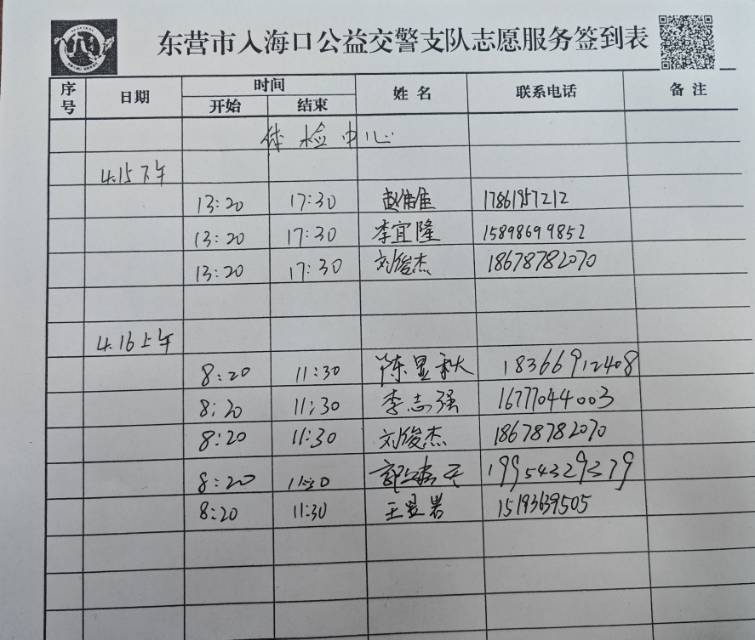 东营市入海口公益交警支队志愿服务签到表
序号 日期 时间 姓名 联系电话 备注
开始 结束
体检中心
4.15下午
13:20 17:30 赵佳 17861957212
13:20 17:30 李宜隆 15898699852
13:20 17:30 刘俊杰 18678782070
4.16上午
8:20 11:30 陈显秋 18366912408
8:20 11:30 李志强 16777044003
8:20 11:30 刘俊杰 18678782070
8:20 11:30 19954329379
8:20 11:30 王昱岩 15193639505